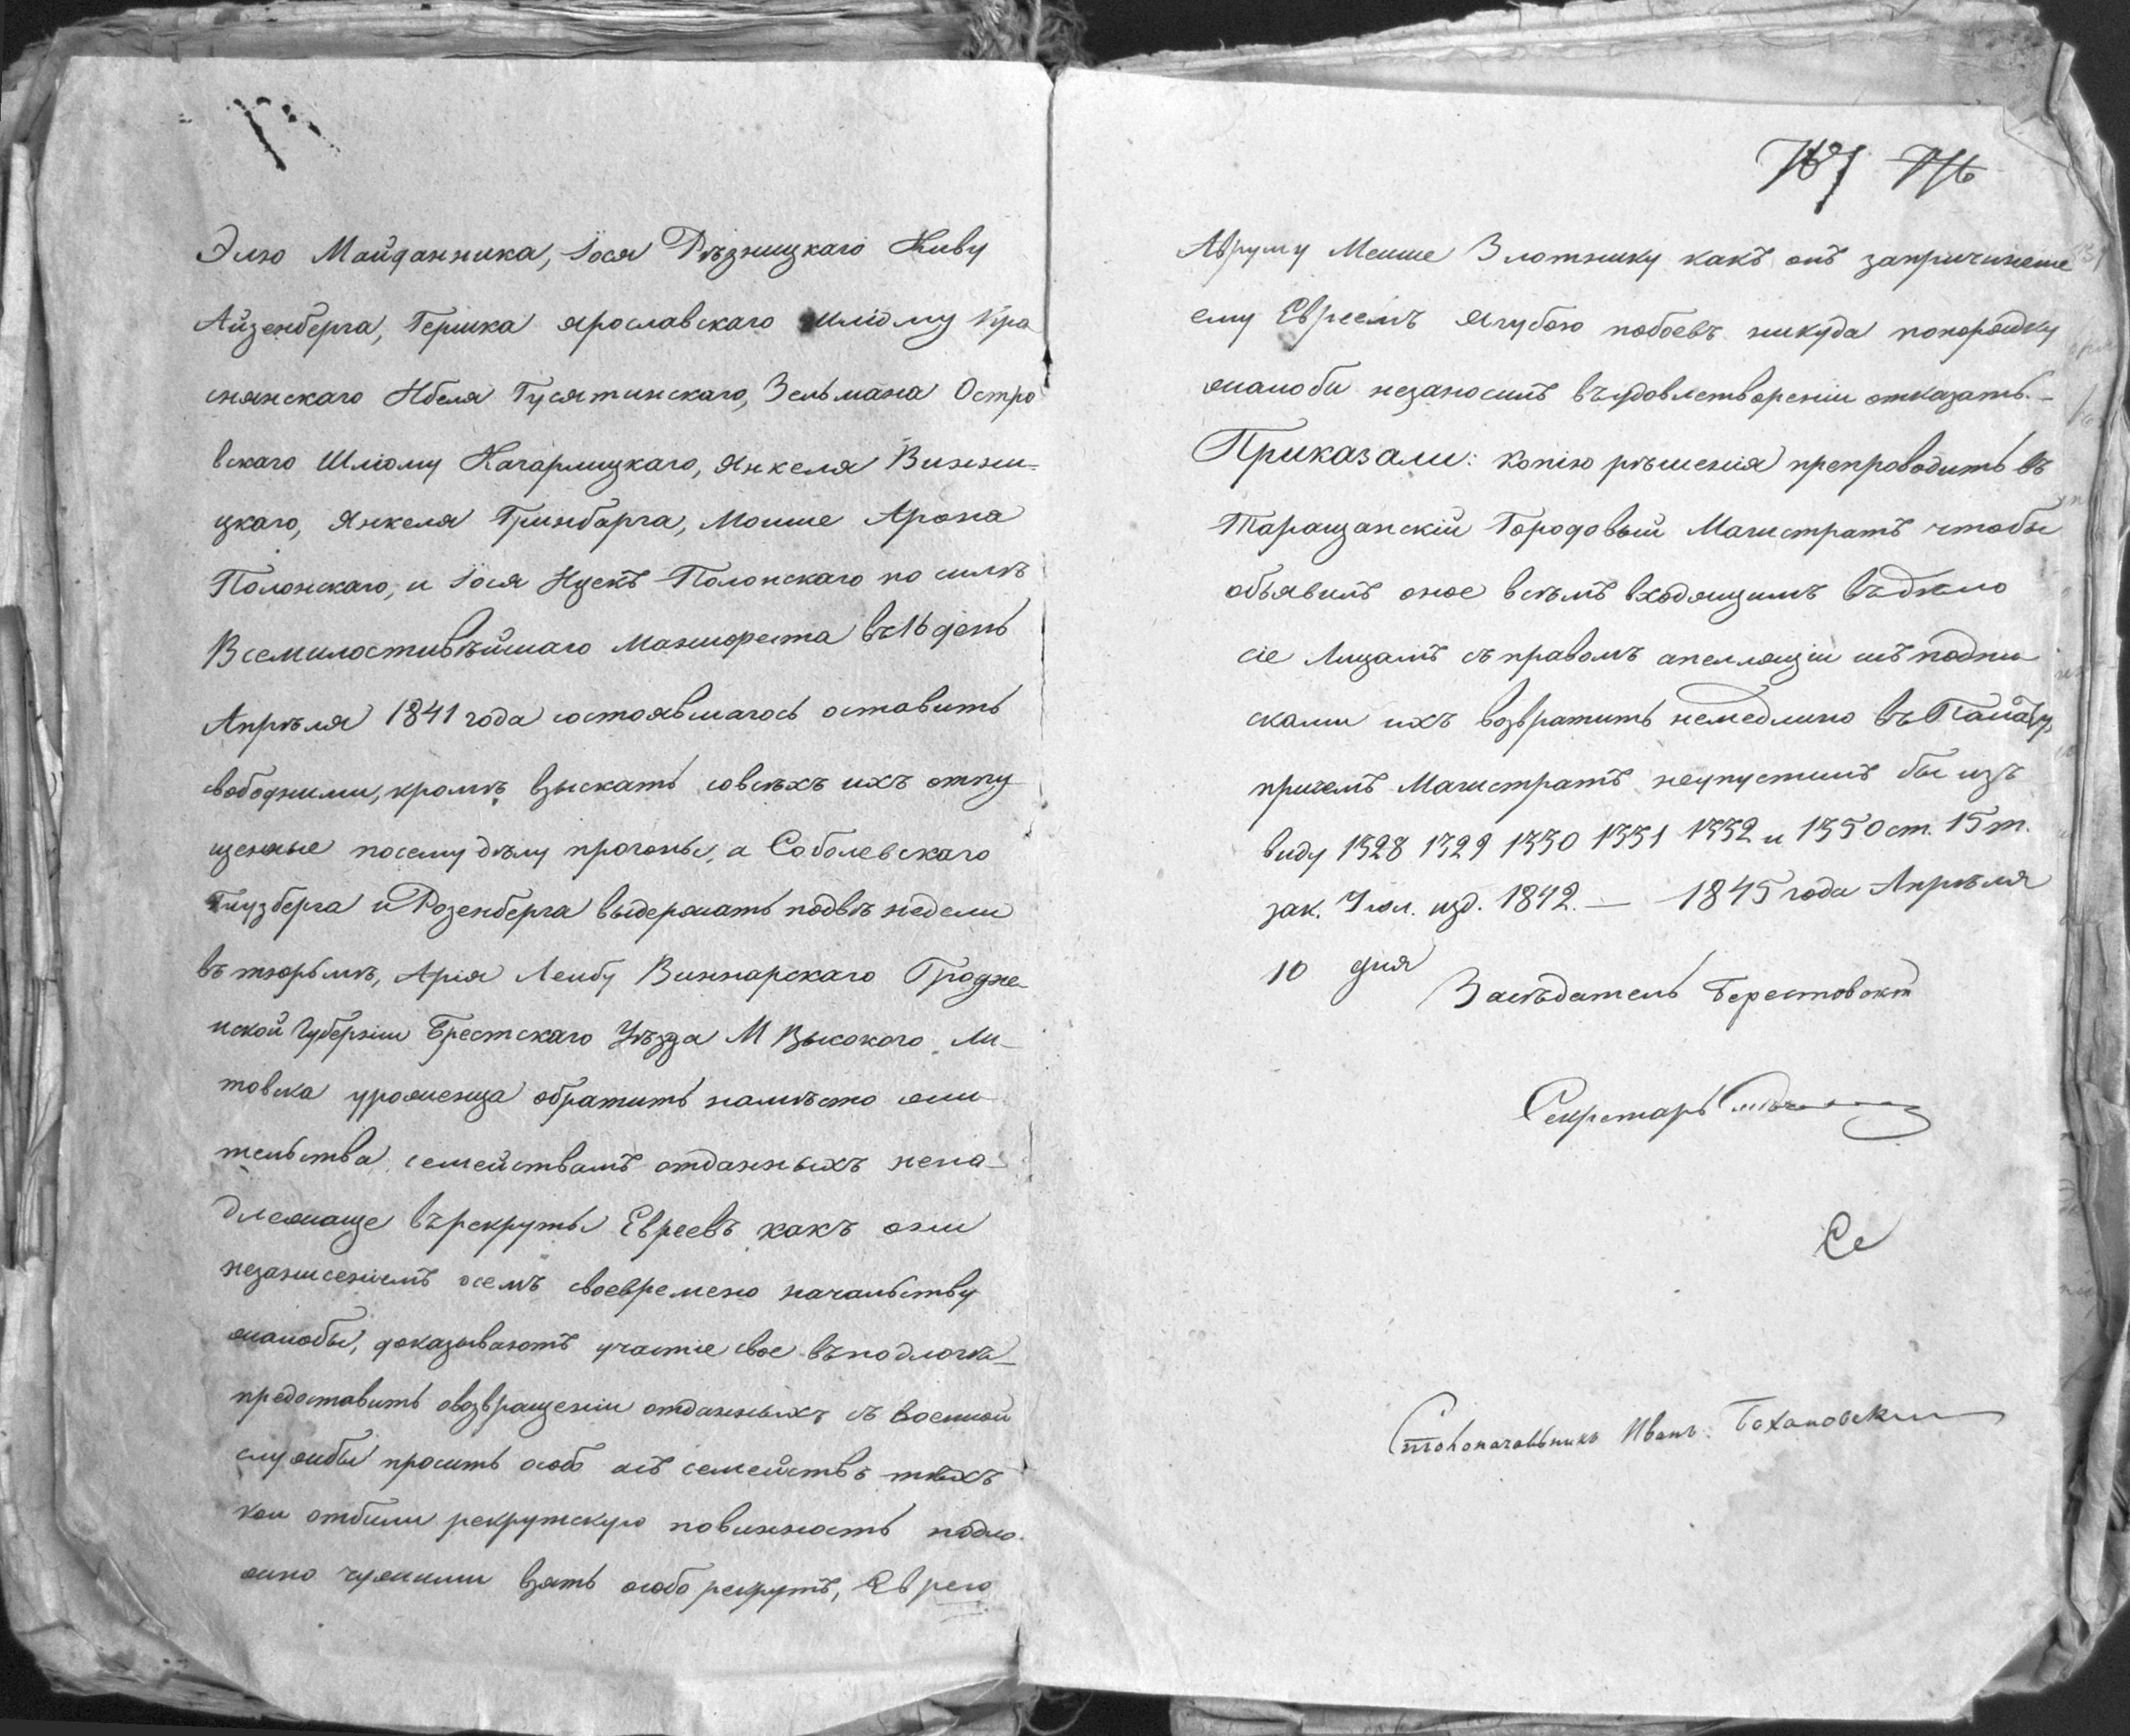 Элю Майданника, Іося Рѣзницкаго Киву
Айзенберга, Гершка Ярославскаго Шліому Кра
снянскаго Абеля Гусятинскаго, Зельмана Остро
вскаго Шліому Кагарлицкаго, Янкеля Винни=
цкаго, Янкеля Гринбарга, Мошие Арона
Полонскаго, и Іося Ицекъ Полонскаго по силѣ
Всемилостивѣйшаго Манифеста въ 16 день
Апрѣля 1841 года состоявшагось оставить
свободними, кромѣ взыскать совсѣхъ ихъ отпу
щенные посему дѣлу прогоны, а Соболевскаго
Гинзберга и Розенберга выдержать подвѣ недели
въ тюрьмѣ, Арія Лейбу Виннарскаго Гродне
нской Губерніи Брестскаго Уѣзда М Высокого Ли-
товска уроженца обратить намѣсто жи-
тельства, семействамъ отданныхъ нена-
длежаще въ рекруты Евреевъ какъ они
незанисеніемъ осемъ своевремено начальству
жалобы, доказываютъ участіе свое въ подлогѣ-
предоставить овозвращеніи отданныхъ съ военной
службы просить особо асъ семействъ тѣхъ
кои отбили рекрутскую повинность подло-
жно чужими взять особо рекрутъ, Еврею
Авруму Мошие Злотнику какъ онъ запричинение
ему Евреемъ Ягубою побоевъ никуда попорядку
жалоби незаносилъ въ удовлетвореніи отказать.-
Приказали: Копію рѣшенія препроводить въ
Таращанскій Городовый Магистратъ чтобы
объявилъ оное всѣмъ входящимъ въ дѣло
сіе Лицамъ съ правомъ апелляціи исъ подпи
сками ихъ возвратить немедлино въ Палату,
причемъ Магистратъ неупустилъ бы изъ
виду 1328 1329 1330 1331 1332 и 1350 ст. 15 т.
зак. Угол. изд. 1842. — 1845 года Апрѣля
10 дня
Засѣдатель Берестовскій
Секретарь
Се
Столоначальникъ Иванъ Бохановскій